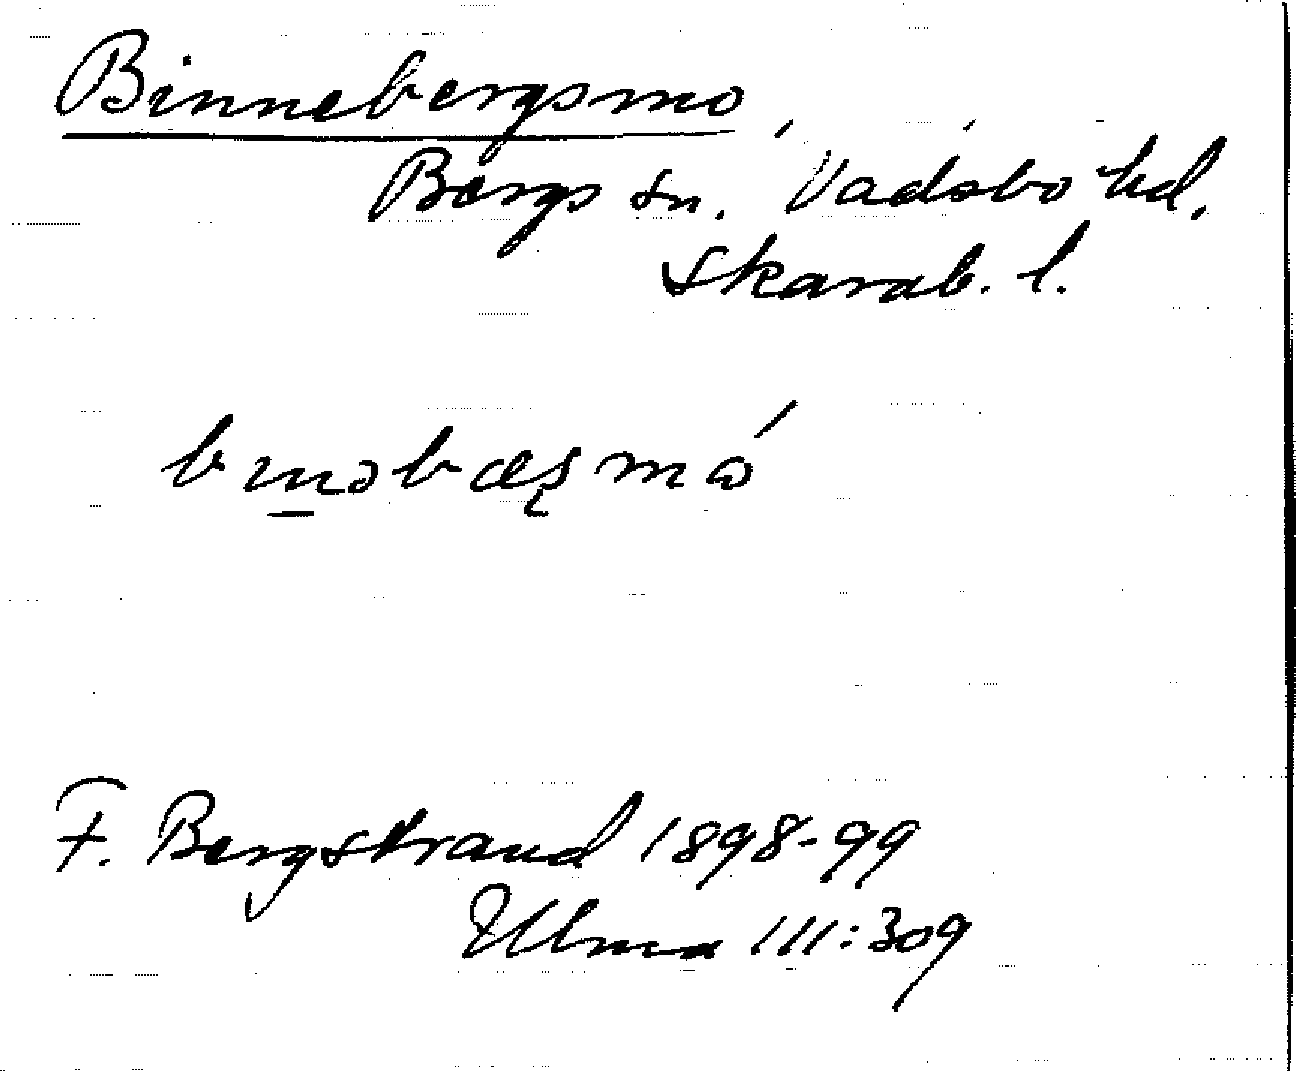 Binnebergsmo,
Bergs sn. Vadsbo hd.
Skarab. l.
F. Bergstrand 1898-99
Ulma 111:309